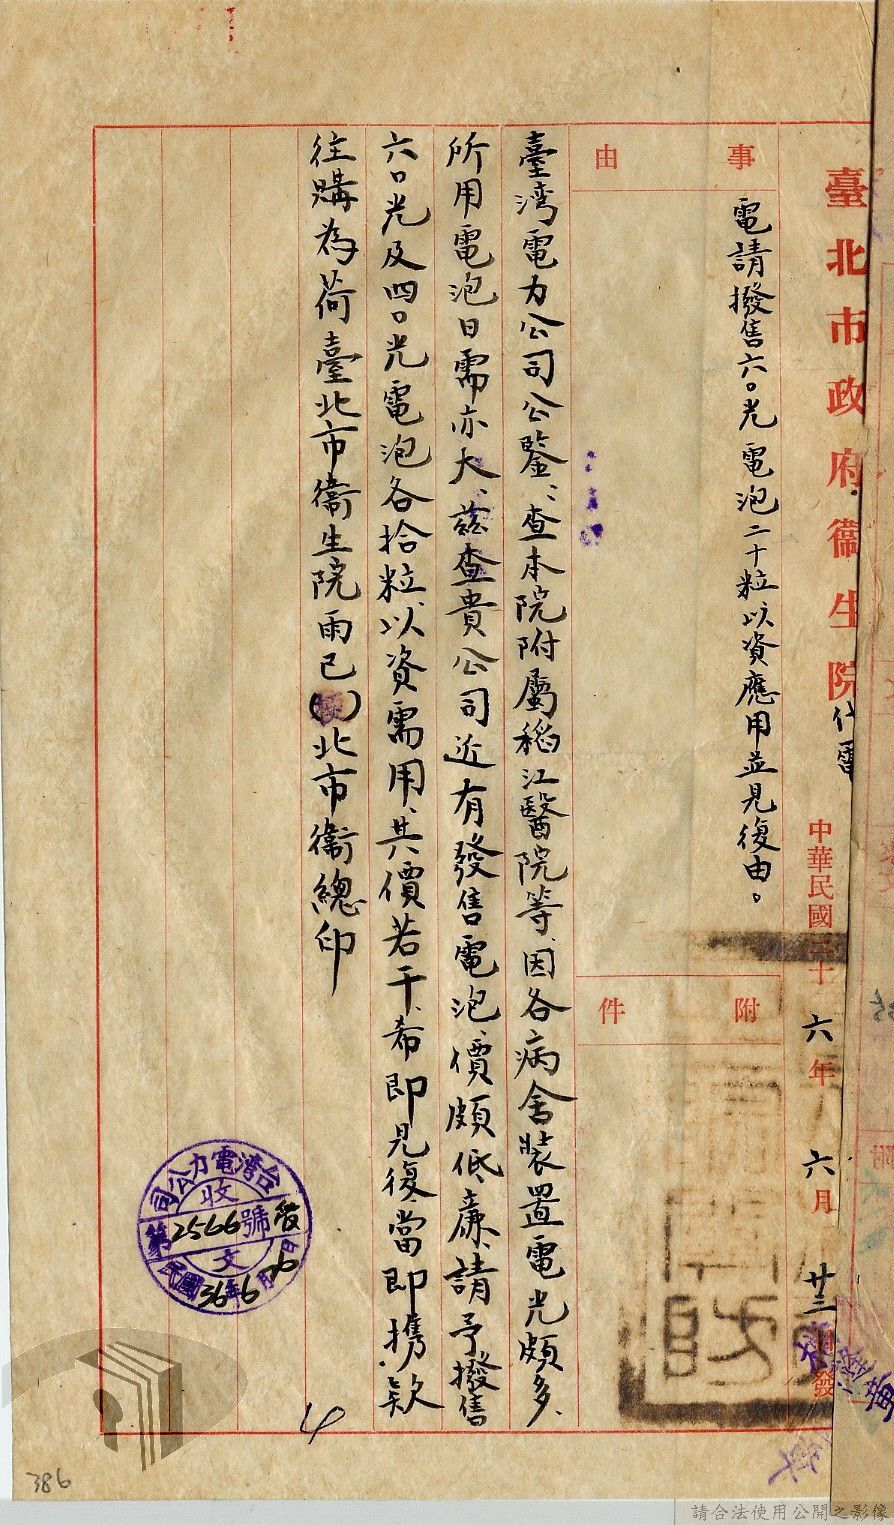 臺北市政府衛生院代電
中華民國三十六年六月廿三日發
事由
電請撥售六〇光電泡二十粒以資應用並見復由。
附件
臺湾電力公司公鑒、查本院附屬稻江醫院等、因各病舍裝置電光頗多、
所用電泡日需亦大、茲查貴公司近有發售電泡、價頗低廉、請予撥售
六〇光及四〇光電泡各拾粒、以資需用、其價若干、希即見復當即携款
往購為荷臺北市衛生院雨已()北市衛總印
台灣電力公司
收文
第2566號
民國36年6月26日
4
386
請合法使用公開之影像